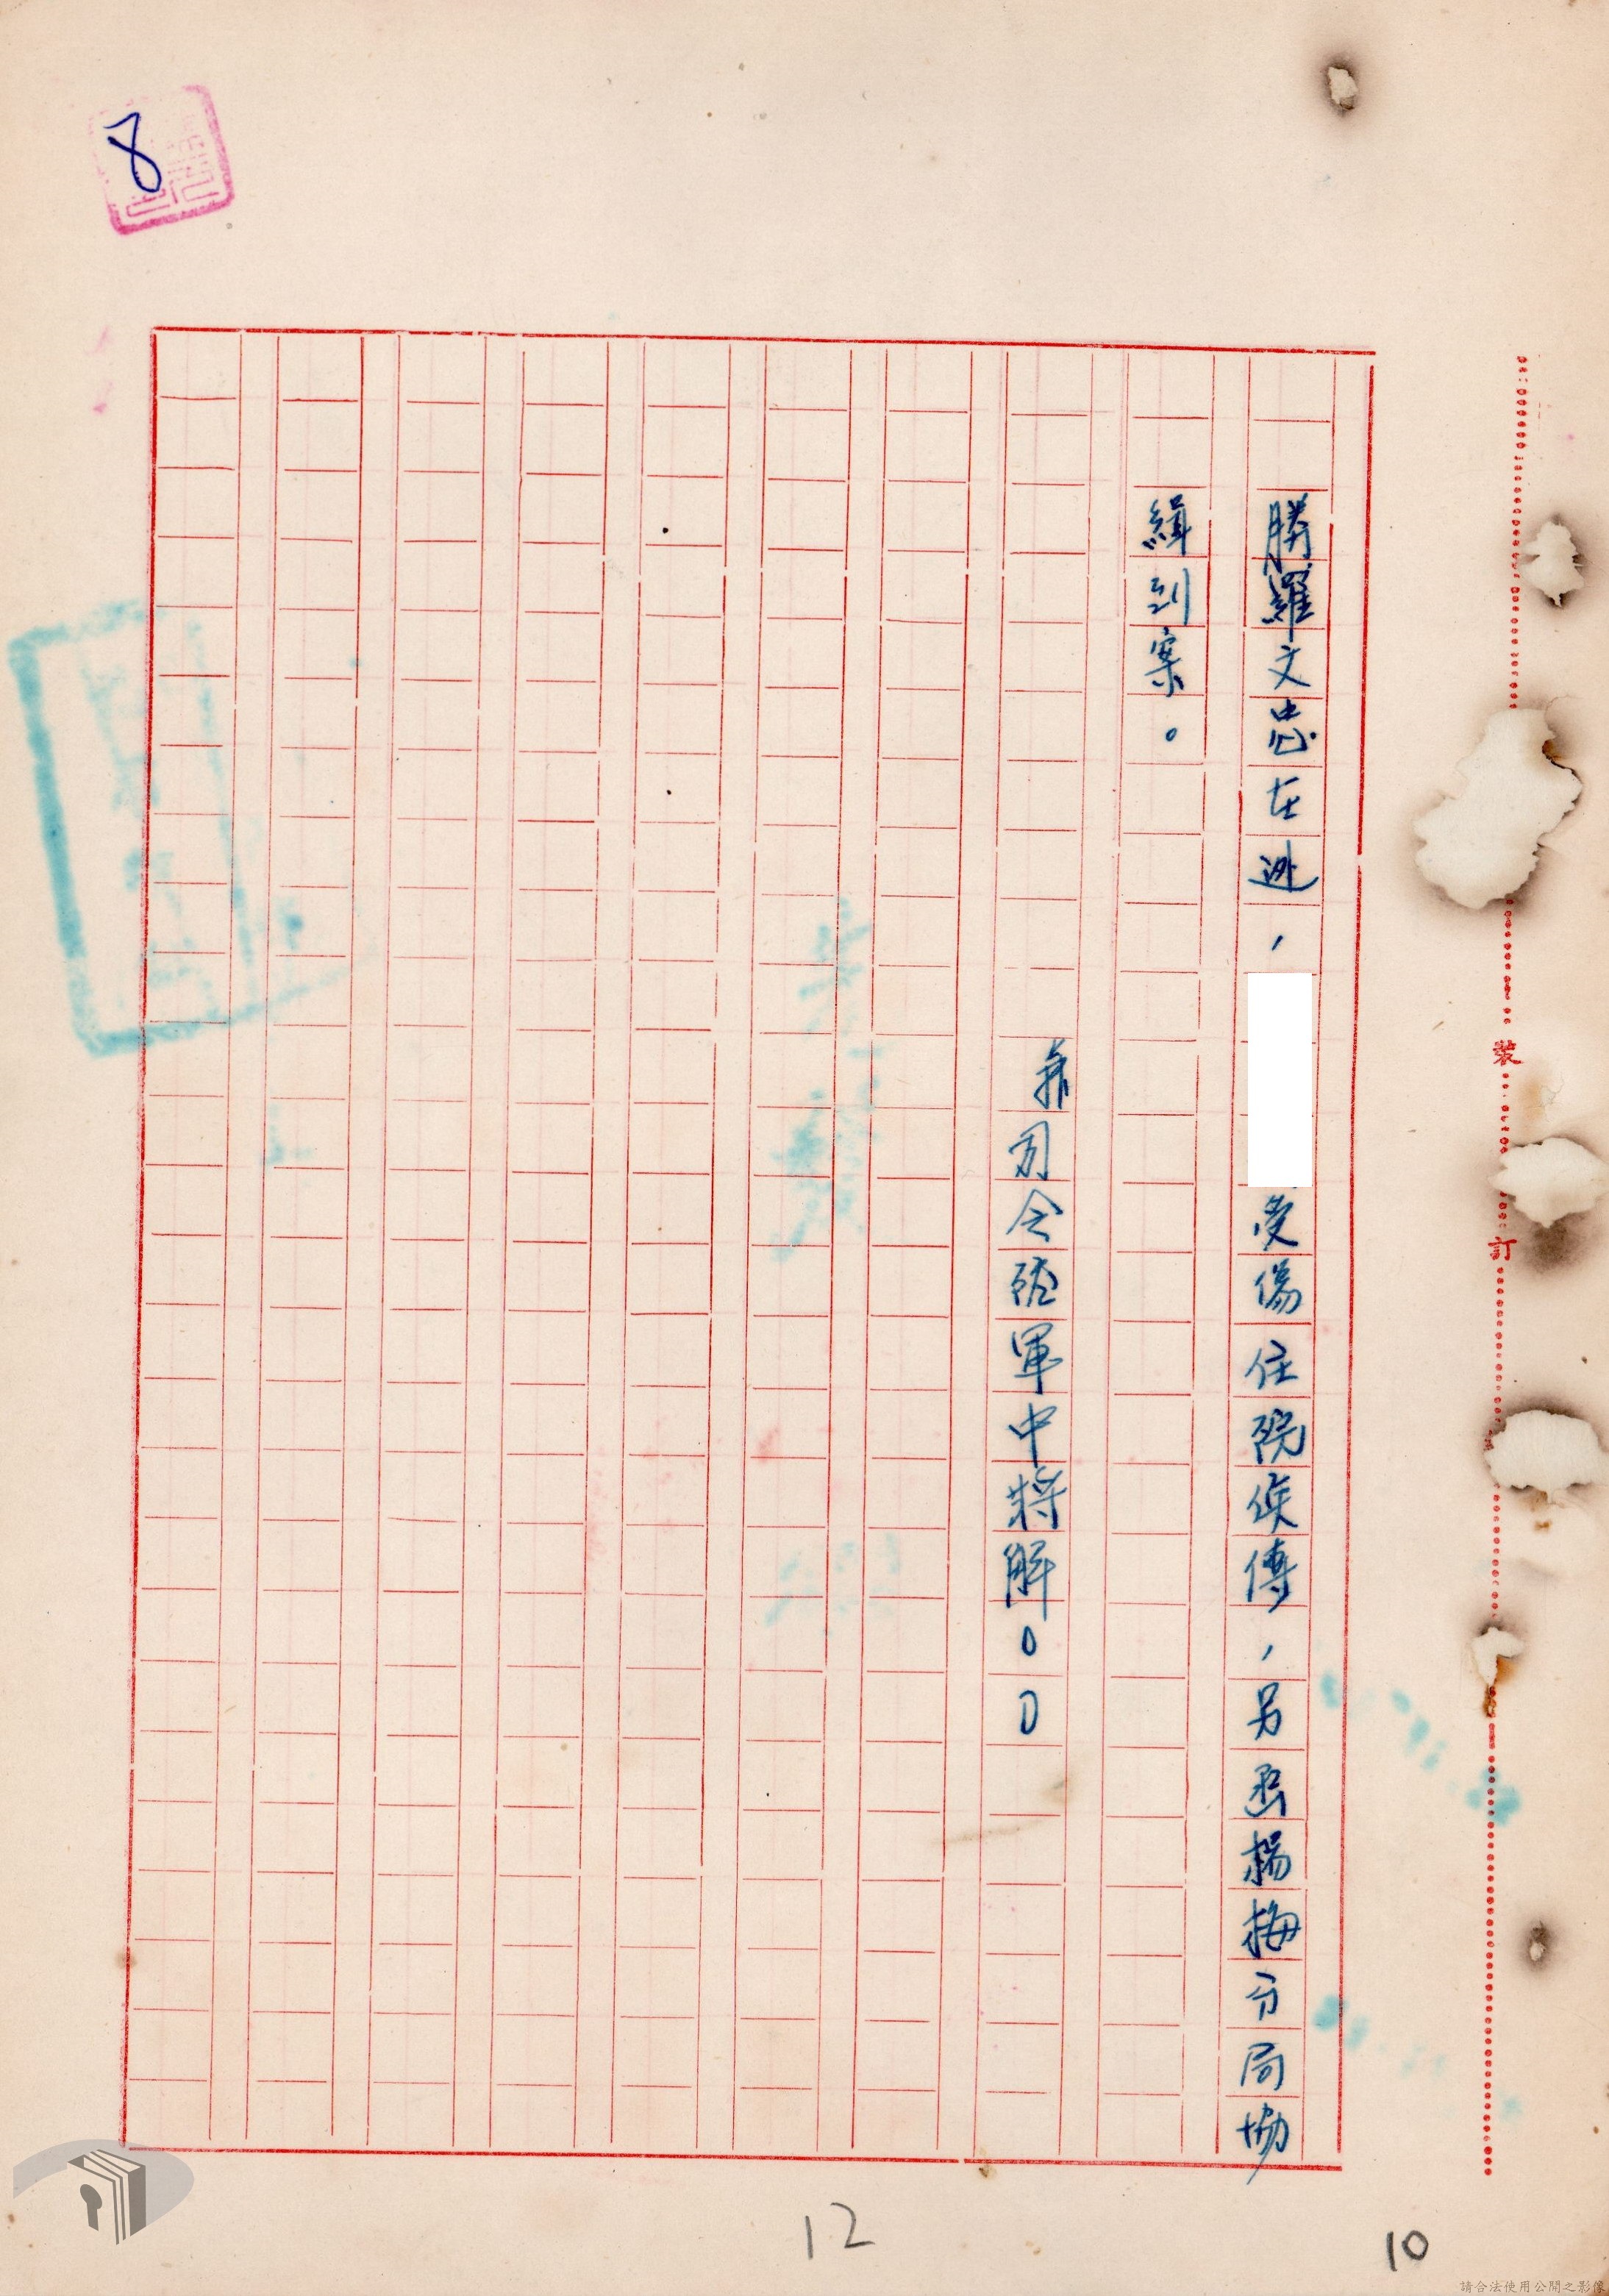 勝羅文忠在逃，受傷住院候傳，另函楊梅分局協
緝到案。
兼司令陸軍中將解○○
裝訂
8
12
10
請合法使用公開之影像